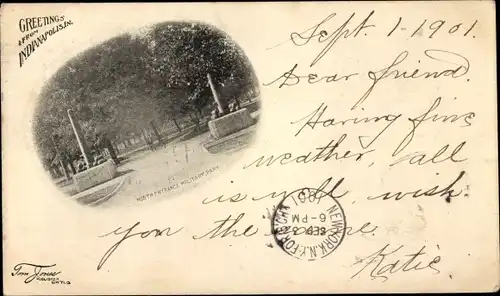 GREETINGS
FROM
INDIANAPOLIS, IN.
Sept. 1-1901.
Dear friend.
Having fine
weather, all
is well, wish
you the same
Katie
NORTH ENTRANCE MILITARY PARK
NEW YORK, N.Y. FOREIGN
1901
SEP 3
6-PM
Tom Jones
CIN'TI. O.